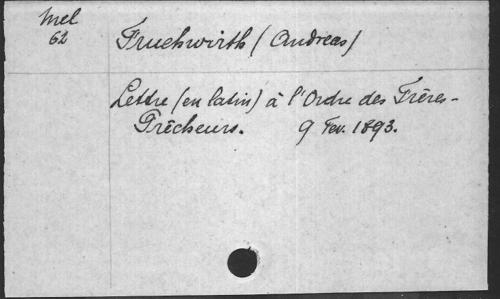 Mel
62
Fruehwirth (Andreas)
Lettre (en latin) à l'Ordre des Frères-
Prêcheurs. 9 Fev. 1893.